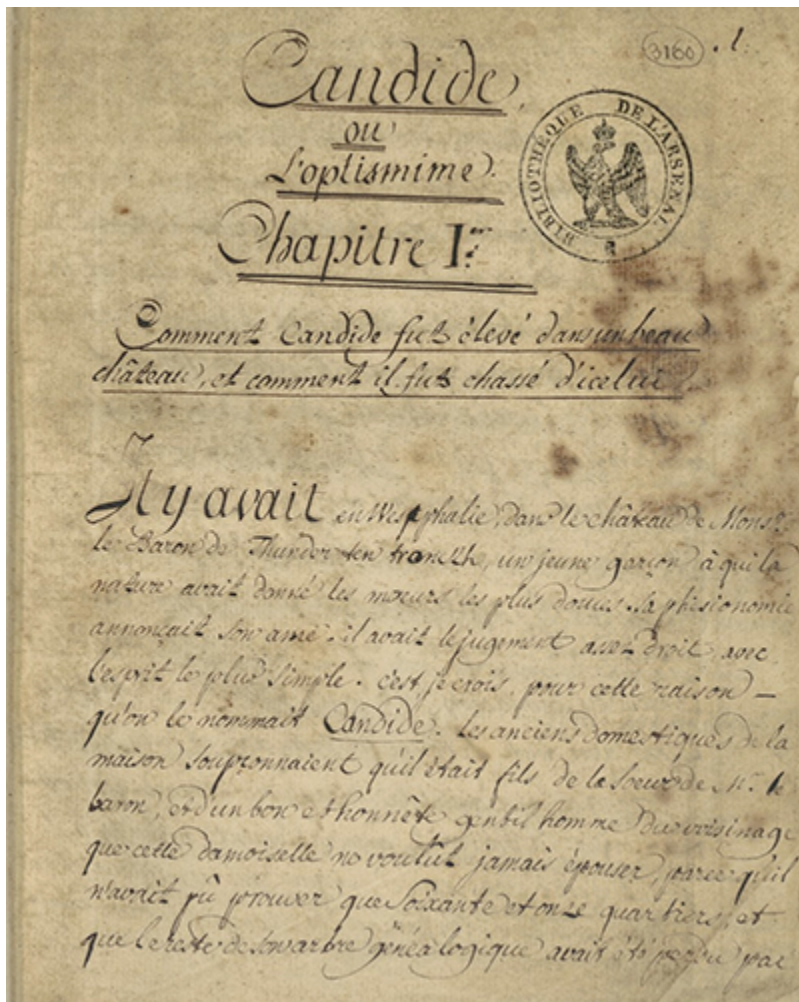 3160 . 1.
Candide,
ou
L'optismime.
BIBLIOTHÈQUE DE L'ARSENAL
Chapitre I.er
Comment Candide fut élevé dans un beau
château, et comment il fut chassé d'icelui
Il y avait en Westphalie, dans le château de Mons.r
le Baron de Thunder ten tronckh, un jeune garçon à qui la
nature avait donné les moeurs les plus douces. sa phisionomie
annonçait son ame. il avait le jugement assez droit, avec
l'esprit le plus simple. c'est, je crois, pour cette raison —
qu'on le nommait Candide. les anciens domestiques de la
maison soupçonnaient qu'il était fils de la soeur de M.r le
baron, et d'un bon et honnête gentil homme du voisinage
que cette damoiselle ne voulût jamais épouser, parce qu'il
n'avait pû prouver que soixante et onze quartiers, et
que le reste de son arbre généalogique avait été perdu par